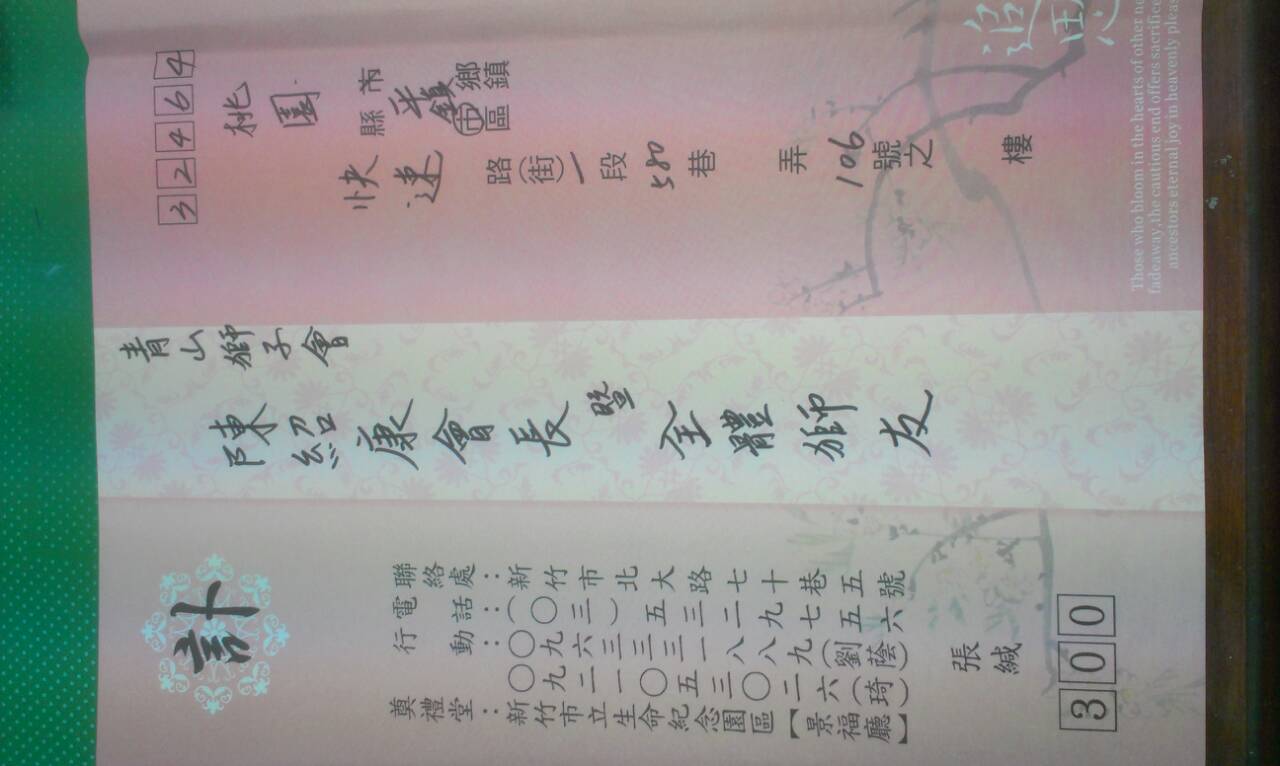 32464
桃園縣市平鎮市區鄉鎮
快速路(街)一段580巷 弄106號之 樓
追思
Those who bloom in the hearts of other ne
fadeaway,the cautious end offers sacrifice
ancestors eternal joy in heavenly pleas
青山獅子會
陳紹康會長暨全體獅友
訃
聯絡處：新竹市北大路七十巷五號
電話：（○三）五三二九七五六
行動：○九六三三三一八八九（劉蔭）
○九二一○五三○二六（琦）
奠禮堂：新竹市立生命紀念園區【景福廳】
張緘
300